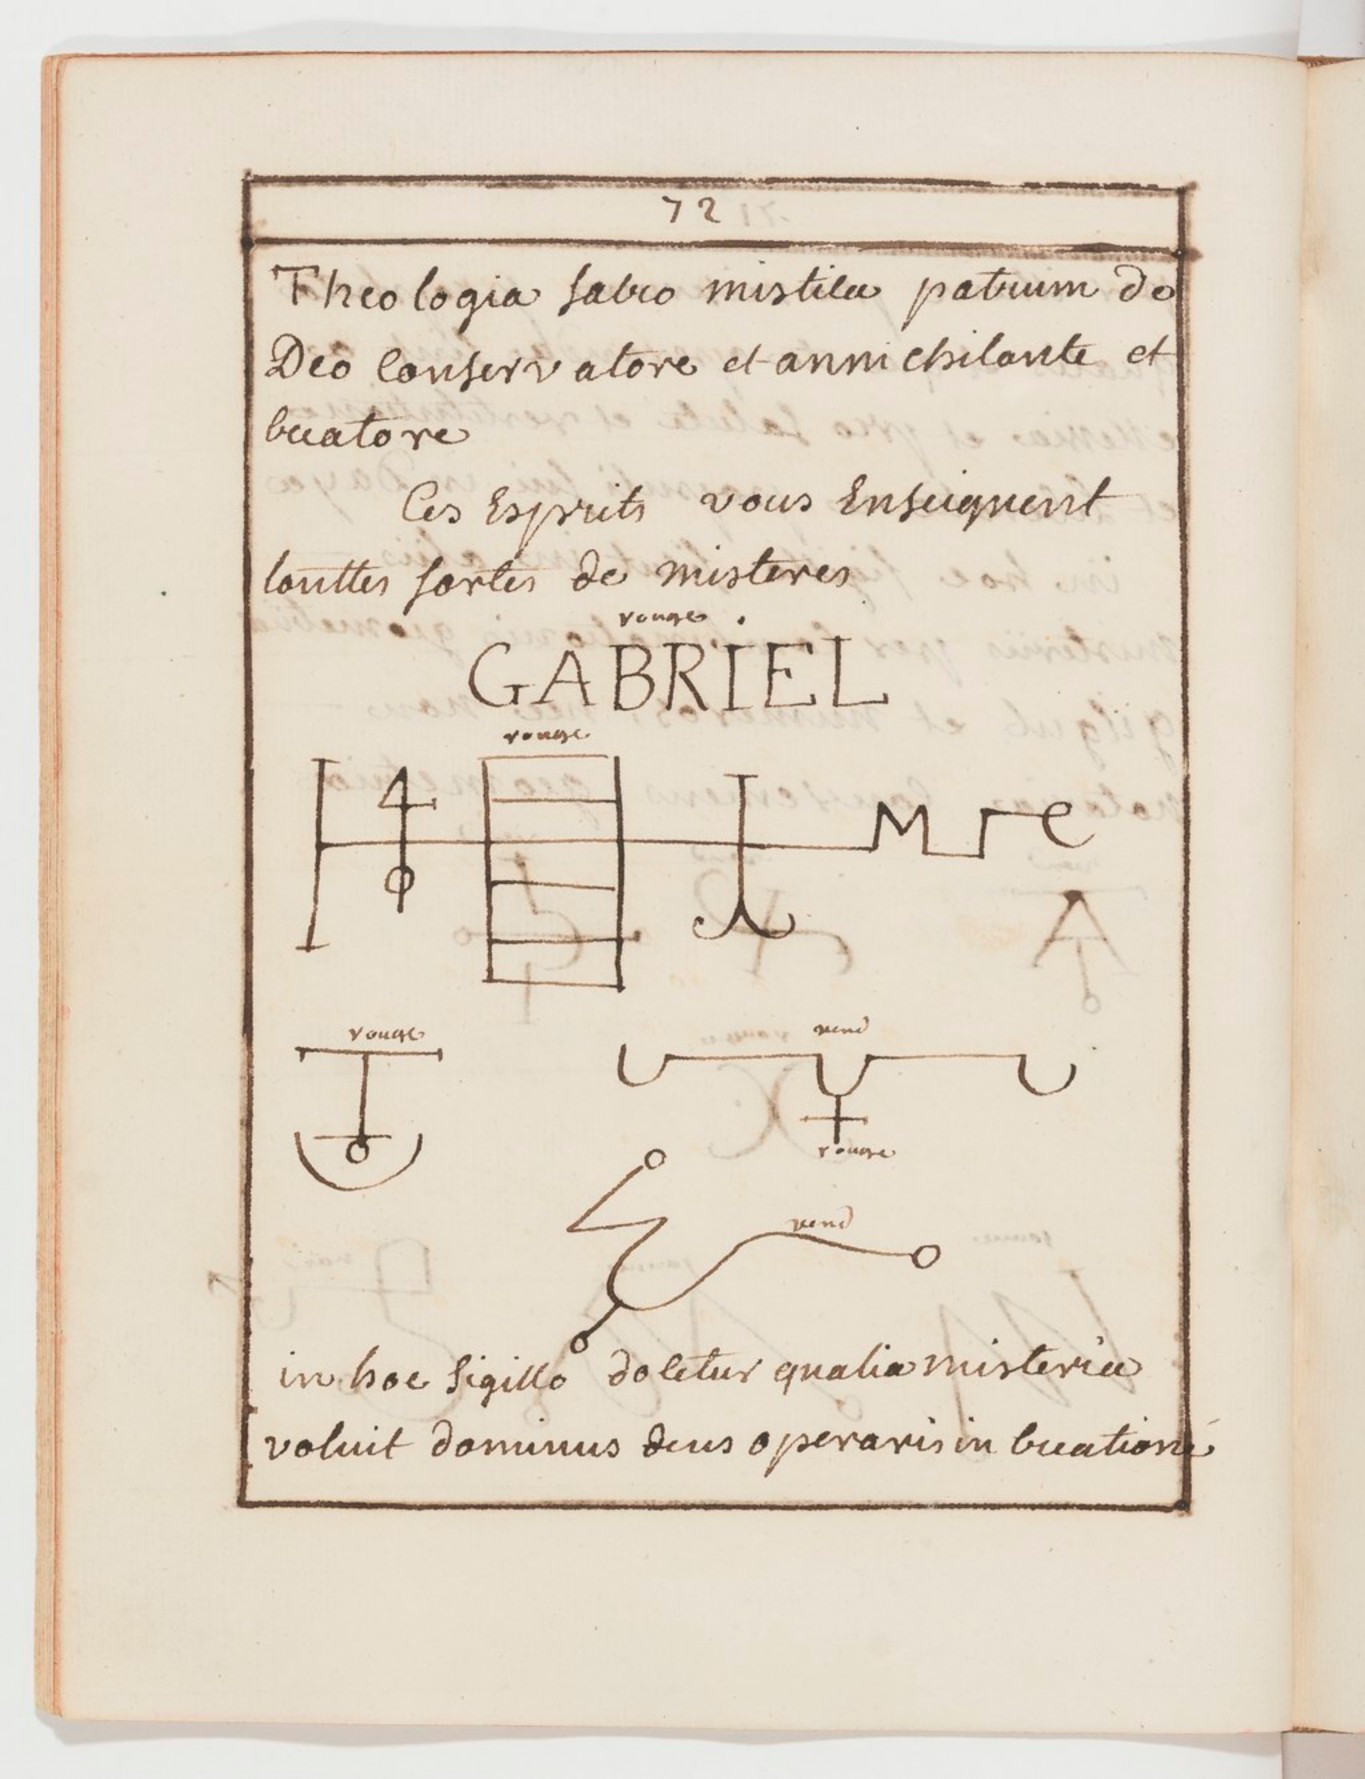 72
Theologia sabro mistica patrum do
Deo Conservatore et annichilante et
creatore
Ces Esprits vous Enseignent
touttes sortes de misteres
rouge
GABRIEL
rouge
M e
rouge
verd
rouge
verd
in hoc sigillo doletur qualia misteria
voluit dominus deus operaris in creationé